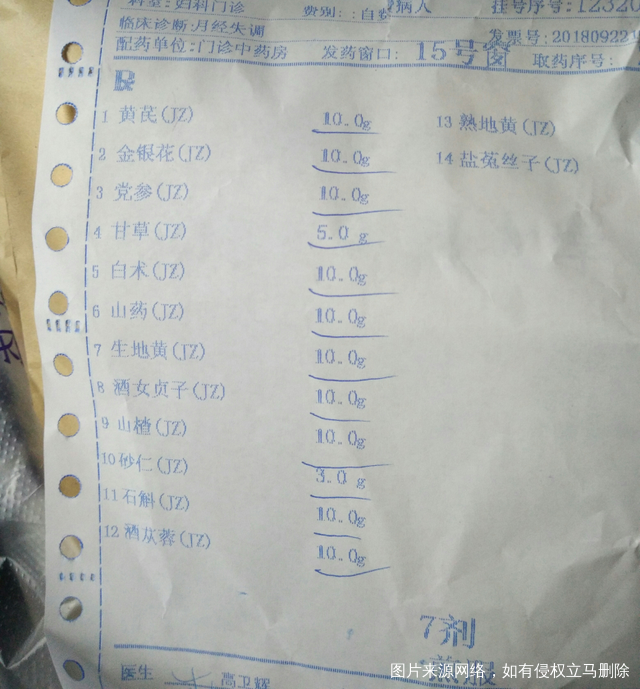 科室:妇科门诊 费别: :自费病人 挂号序号:12320
临床诊断:月经失调 发票号:20180922
配药单位:门诊中药房 发药窗口: 15号窗 取药序号:
R
1 黄芪(JZ) 10.0g 13 熟地黄(JZ)
2 金银花(JZ) 10.0g 14 盐菟丝子(JZ)
3 党参(JZ) 10.0g
4 甘草(JZ) 5.0 g
5 白术(JZ) 10.0g
6 山药(JZ) 10.0g
7 生地黄(JZ) 10.0g
8 酒女贞子(JZ) 10.0g
9 山楂(JZ) 10.0g
10 砂仁(JZ) 3.0 g
11 石斛(JZ) 10.0g
12 酒苁蓉(JZ) 10.0g
7剂
医生 高卫辉 煎服
图片来源网络,如有侵权立马删除